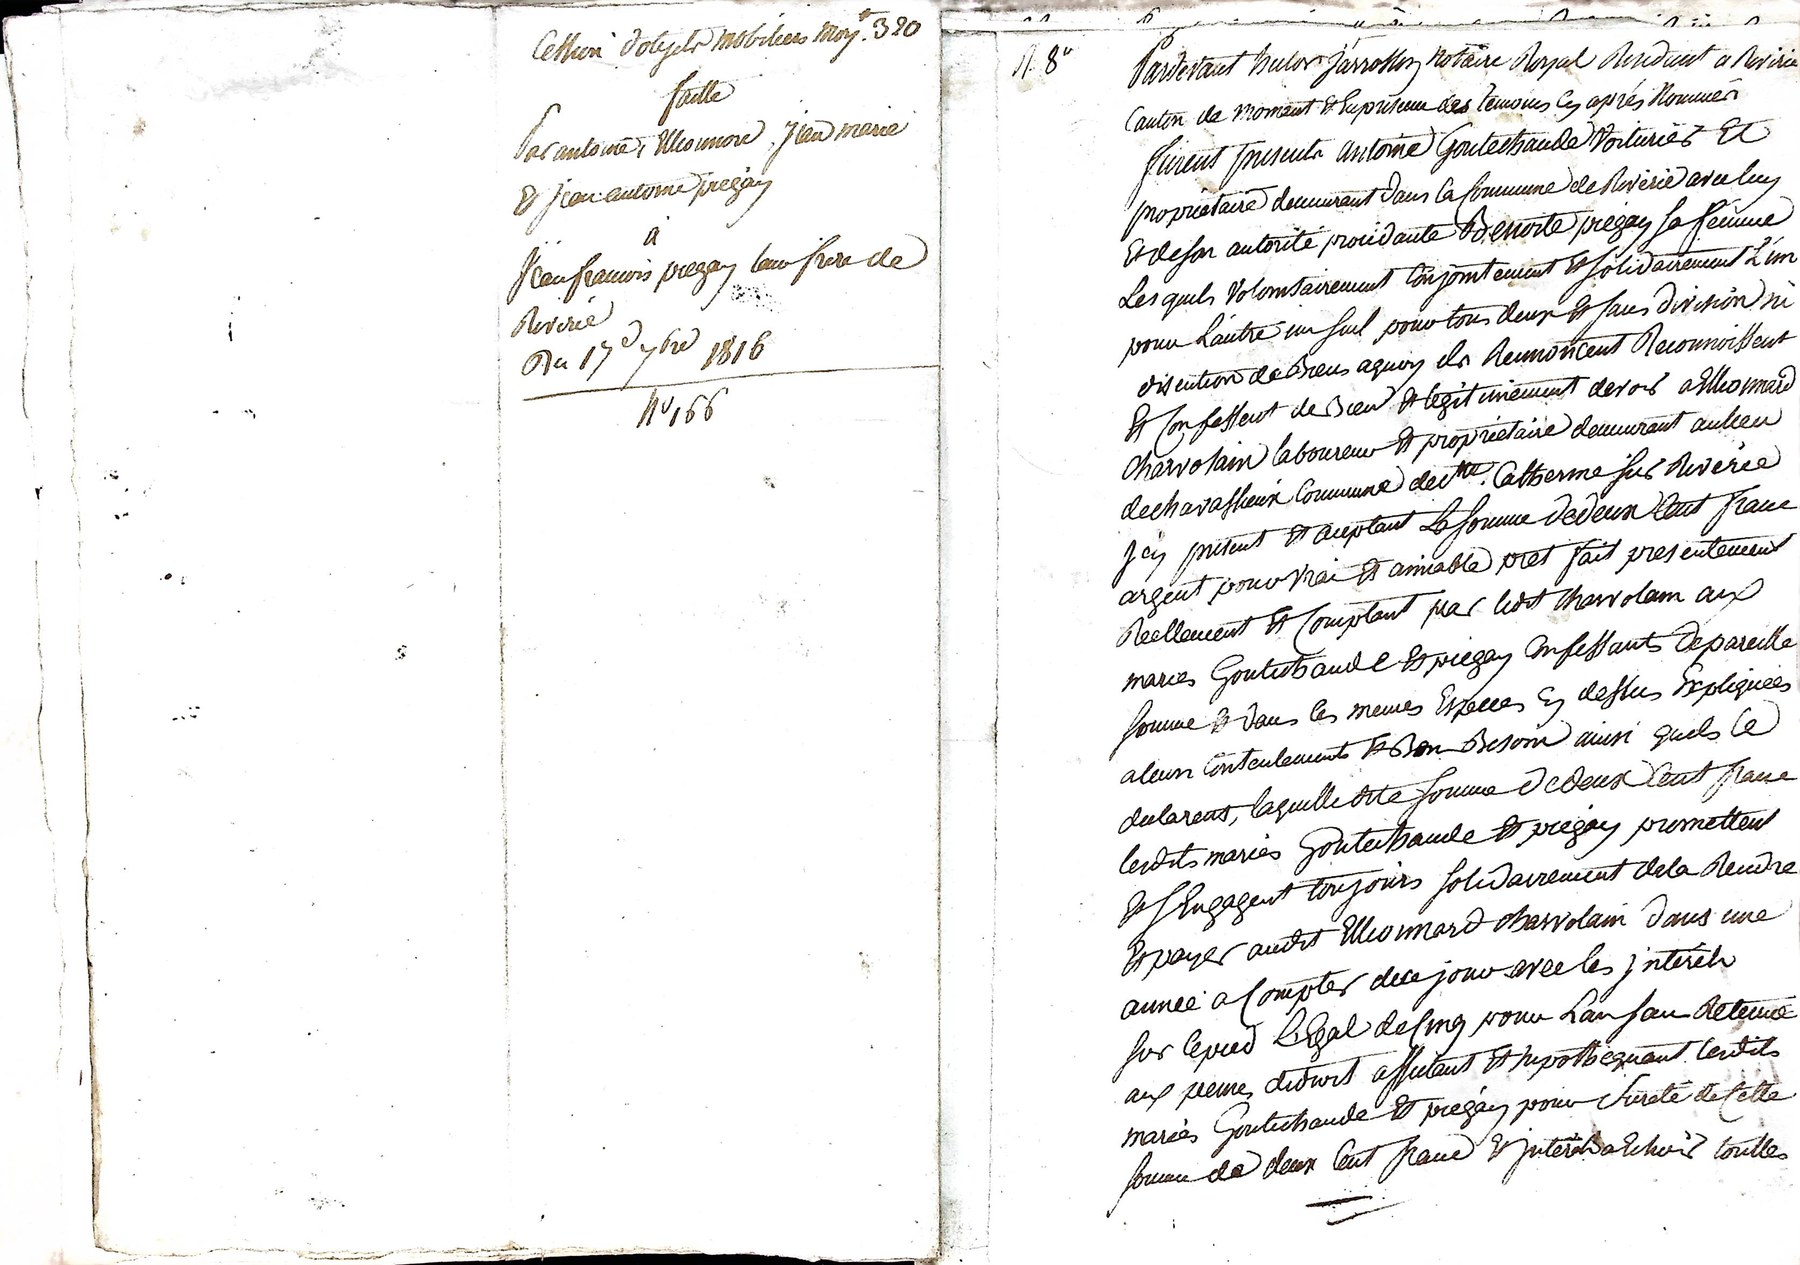 Cession d'objets mobiliers moy.t 320
faitte
Par antoine, Ellionnore, jean marie
et jean antoine piegay
a
Jean francois piegay leur frere de
Riverie
Du 17e 7bre 1816
No 166
R. 8e
Pardevant hector jarrosson Notaire Royal Residant a Riverie
Canton de Mornant et En presence des temoins Cy aprés Nommés
furent presents antoine Goutechaude Voiturier Et
proprietaire demeurant dans la Commune de Riverie avec luy
et de son autorité procedante Benoite piegay sa femme
Lesquels Volontairement Conjointement et solidairement L'un
pour L'autre un seul pour tous deux et sans division ni
discution de Biens aquoy ils Renoncent Reconnoissent
et Confessent de Bien et legitimement devoir a Ellionnard
Charvolain laboureur et proprietaire demeurant au lieu
de chavassieux Commune de Ste. Catherine sur Riverie
Jcy present et aceptant La somme de deux Cent franc
argent pour vrai et amiable pret fait presentement
Reellement et Comptant par ledit Charvolain aux
mariés Goutechaude et piegay Confessants de pareille
somme et dans les memes Especes Cy dessus Expliquées
a leur Contentement et Bon Besoin ainsi quils le
declarent, laquelle dite somme de deux Cent franc
lesdits mariés Goutechaude et piegay promettent
et s'Engagent toujours solidairement de la Rendre
et payer audit Ellionnard Charvolain dans une
année a Compter de ce jour avec les jnteréts
sur le pied Légal de Cinq pour L'an sans Retenue
aux peines de droit affectant et hypothequant lesdits
mariés Goutechaude et piegay pour sureté de Cette
somme de deux Cent franc et jnteréts a Echoir touttes